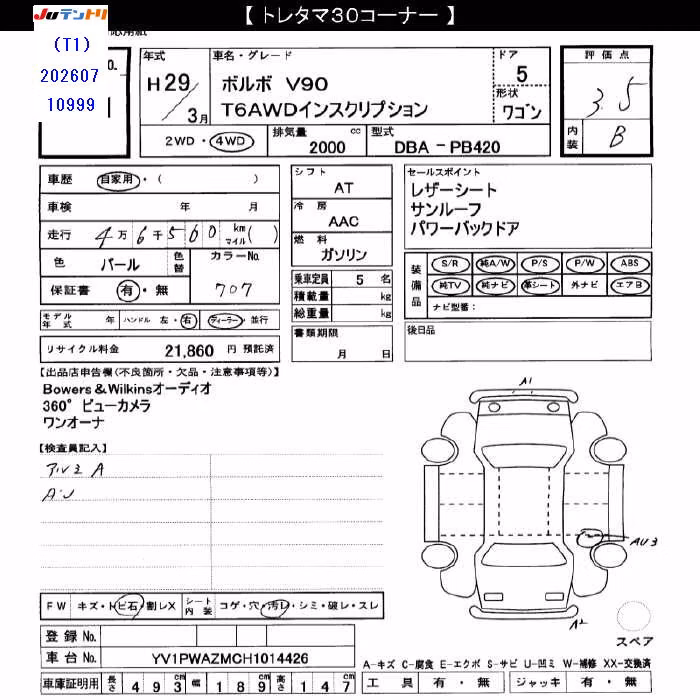 【 トレタマ３０コーナー 】
JUテントリ
(T1)
202607
10999
No.
年式
H 29 / 3 月
車名・グレード
ボルボ V90
T6AWDインスクリプション
ドア 5
形状 ワゴン
評価点
3.5
内装 B
2WD ・ 4WD
排気量 2000 cc
型式 DBA - PB420
車歴 自家用・( )
車検 年 月
走行 4万6千500 km マイル( )
色 パール 色替
カラーNo. 707
保証書 有・無
モデル年式 年 ハンドル 左・右 ディーラー・並行
リサイクル料金 21,860 円 預託済
シフト
AT
冷房
AAC
燃料
ガソリン
乗車定員 5 名
積載量 kg
総重量 kg
書類期限
月 日
セールスポイント
レザーシート
サンルーフ
パワーバックドア
装備品
S/R 純A/W P/S P/W ABS
純TV 純ナビ 革シート 外ナビ エアB
ナビ型番：
後日品
【出品店申告欄(不良箇所・欠品・注意事項等)】
Bowers＆Wilkinsオーディオ
360°ビューカメラ
ワンオーナ
【検査員記入】
アルミ A
A1
AU3
A2
スペア
FW キズ・トビ石・割レX
シート内装 コゲ・穴・汚レ・シミ・破レ・スレ
登録 No.
車台 No. YV1PWAZMCH1014426
車庫証明用 長さ 493 cm 幅 189 cm 高さ 147 cm
A-キズ C-腐食 E-エクボ S-サビ U-凹ミ W-補修 XX-交換済
工具 有・無 ジャッキ 有・無